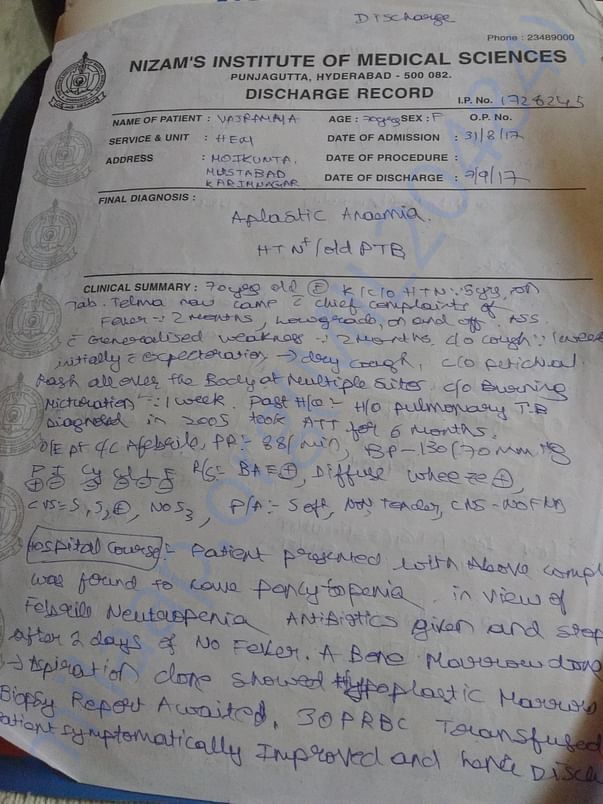 Discharge
Phone : 23489000
NIZAM'S INSTITUTE OF MEDICAL SCIENCES
PUNJAGUTTA, HYDERABAD - 500 082.
DISCHARGE RECORD
I.P. No. 1728245
NAME OF PATIENT : VAJRAMMA AGE : 70yrs SEX : F O.P. No.
SERVICE & UNIT : HEM DATE OF ADMISSION : 31/8/17
ADDRESS : MOIKUNTA, DATE OF PROCEDURE :
MUSTABAD
KARIMNAGAR DATE OF DISCHARGE : 9/9/17
FINAL DIAGNOSIS :
Aplastic Anaemia.
HTN+/old PTB
CLINICAL SUMMARY : 70 years old F K/C/O HTN :- 5yrs, on
Tab. Telma now came c chief complaints of
Fever :- 2 months, Low grade, on and off. ASS
c Generalised weakness :- 2 months, c/o cough :- 1 week
initially c expectoration → dry cough, c/o petichial
Rash all over the Body at Multiple Sites, c/o Burning
Micturation :- 1 week. Past H/o :- H/o Pulmonary T.B
Diagnosed in 2005 took ATT for 6 months.
O/E pt c/c Afebrile, PR :- 88/min, BP - 130/70 mm Hg
P I Cy Cl L E R/S :- BAE+, Diffuse wheeze+,
CVS = S1 S2+, No S3, P/A :- Soft, Non Tender, CNS - NOFND
Hospital Course :- Patient presented with Above compl
was found to have pancytopenia in view of
Febrile Neutropenia Antibiotics given and stop
after 2 days of No Fever. A Bone Marrow done
→ Aspiration done showed Hypoplastic Marrow
Biopsy Report Awaited. 3 PRBC Transfused
Patient symptomatically Improved and hence Disch